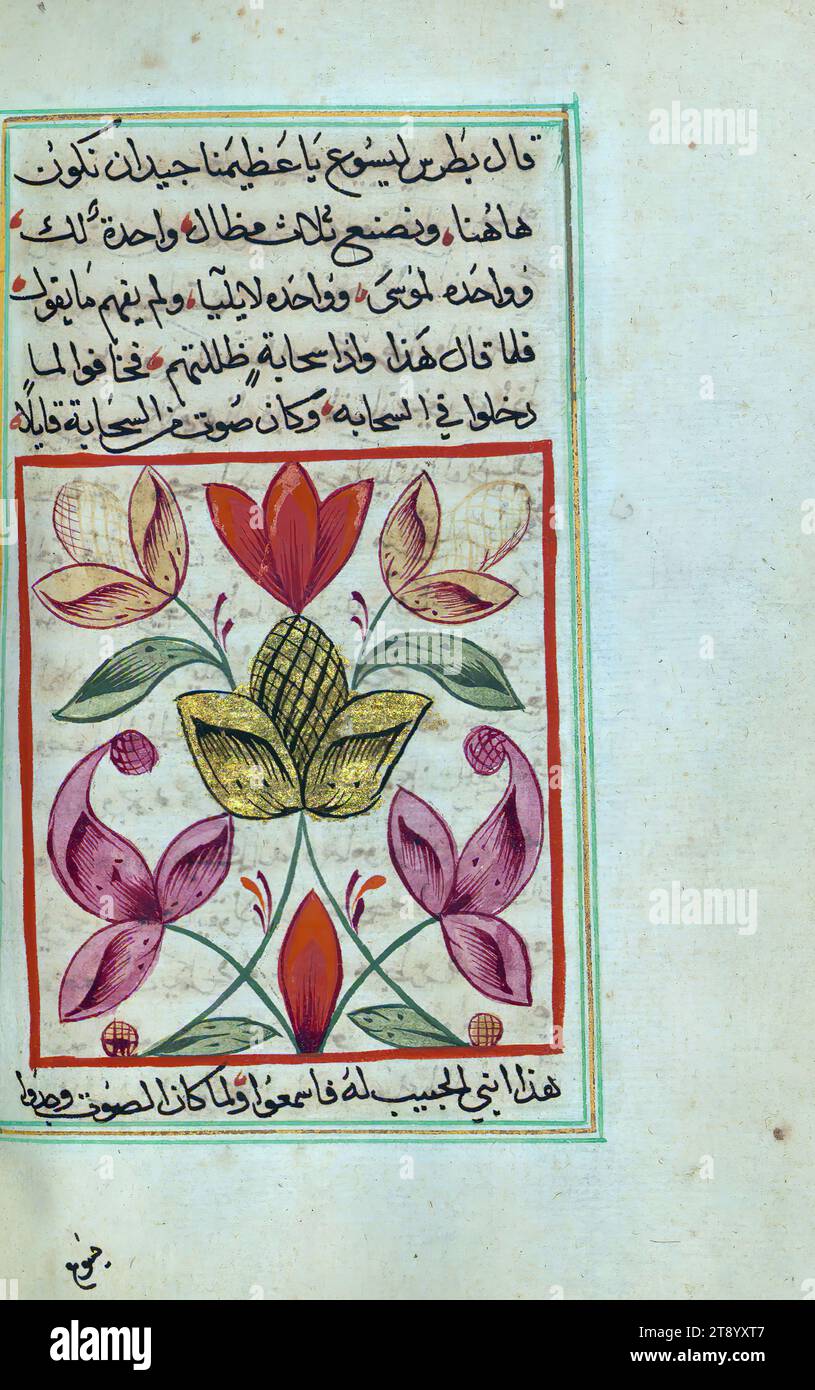 قال بَطرس ليسُوع يَا عَظيمنا جيدان نكونُ
هاهُنا، ونصنع ثلاث مظال، واحدة لك
وَواحدَه لمُوسَى، وَوَاحدَه لايليآ، ولم يفهم مَا يقول
فلما قال هَذا واذا سحابةٍ ظللتهم، فخافوا لما
دخلوا في السحابه، وكان صُوت من السحَابَة قايلًا،
هَذا ابني الحبيب لهُ فاسمعوا، ولما كان الصوت وجدُوا
يسوع
alamy
alamy
alamy
alamy
Image ID: 2T8YXT7
www.alamy.com